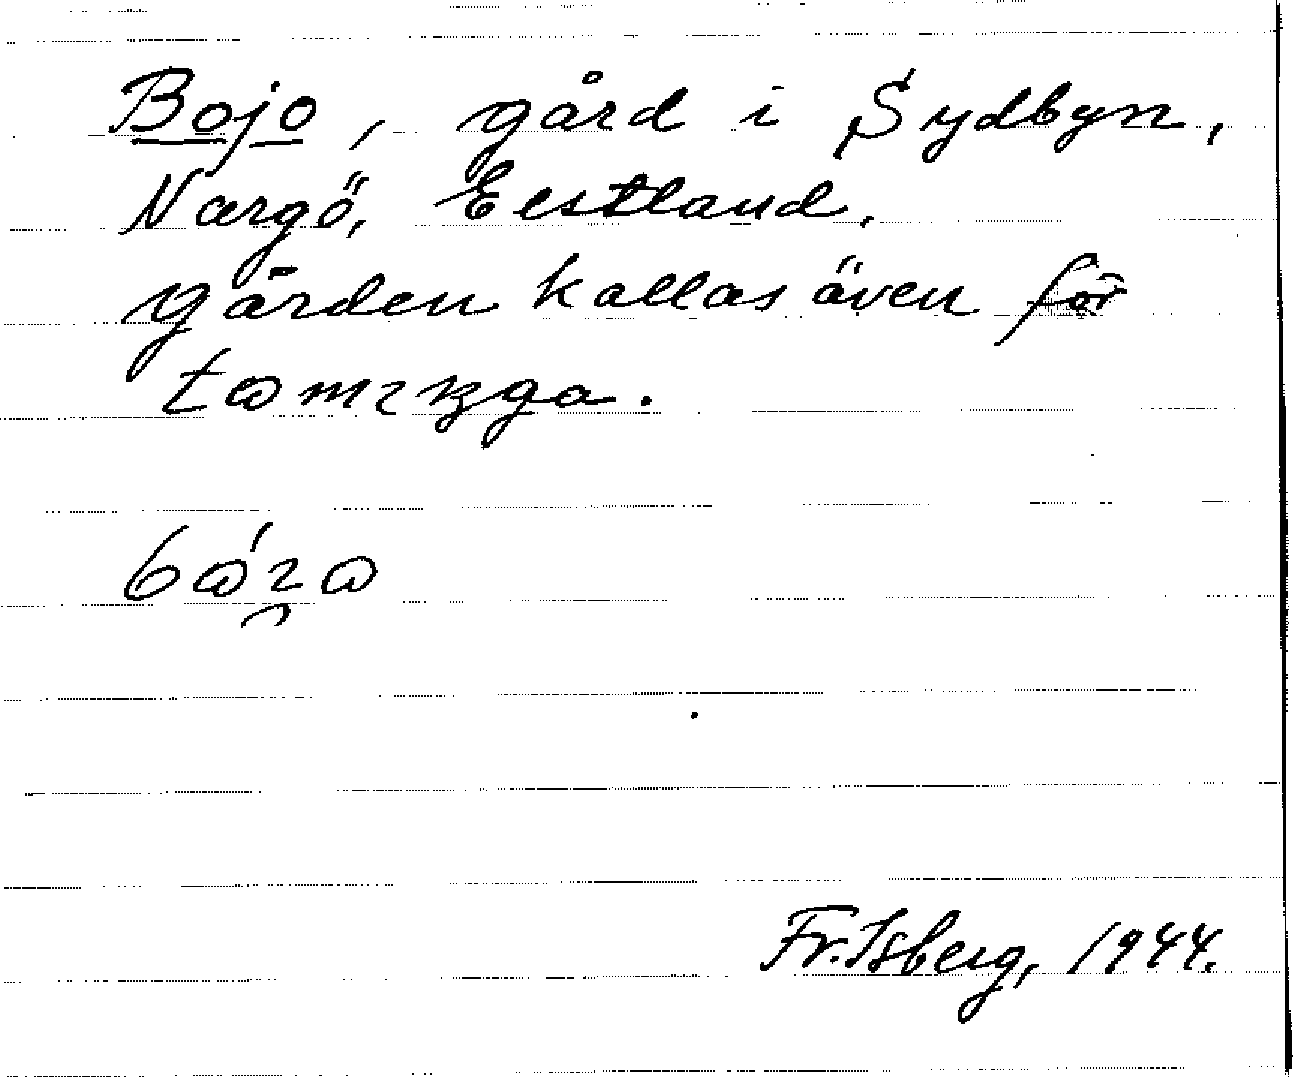 Bojo, gård i Sydbyn,
Nargö, Eestland.
gården kallas även för
Fr. Isberg, 1944.